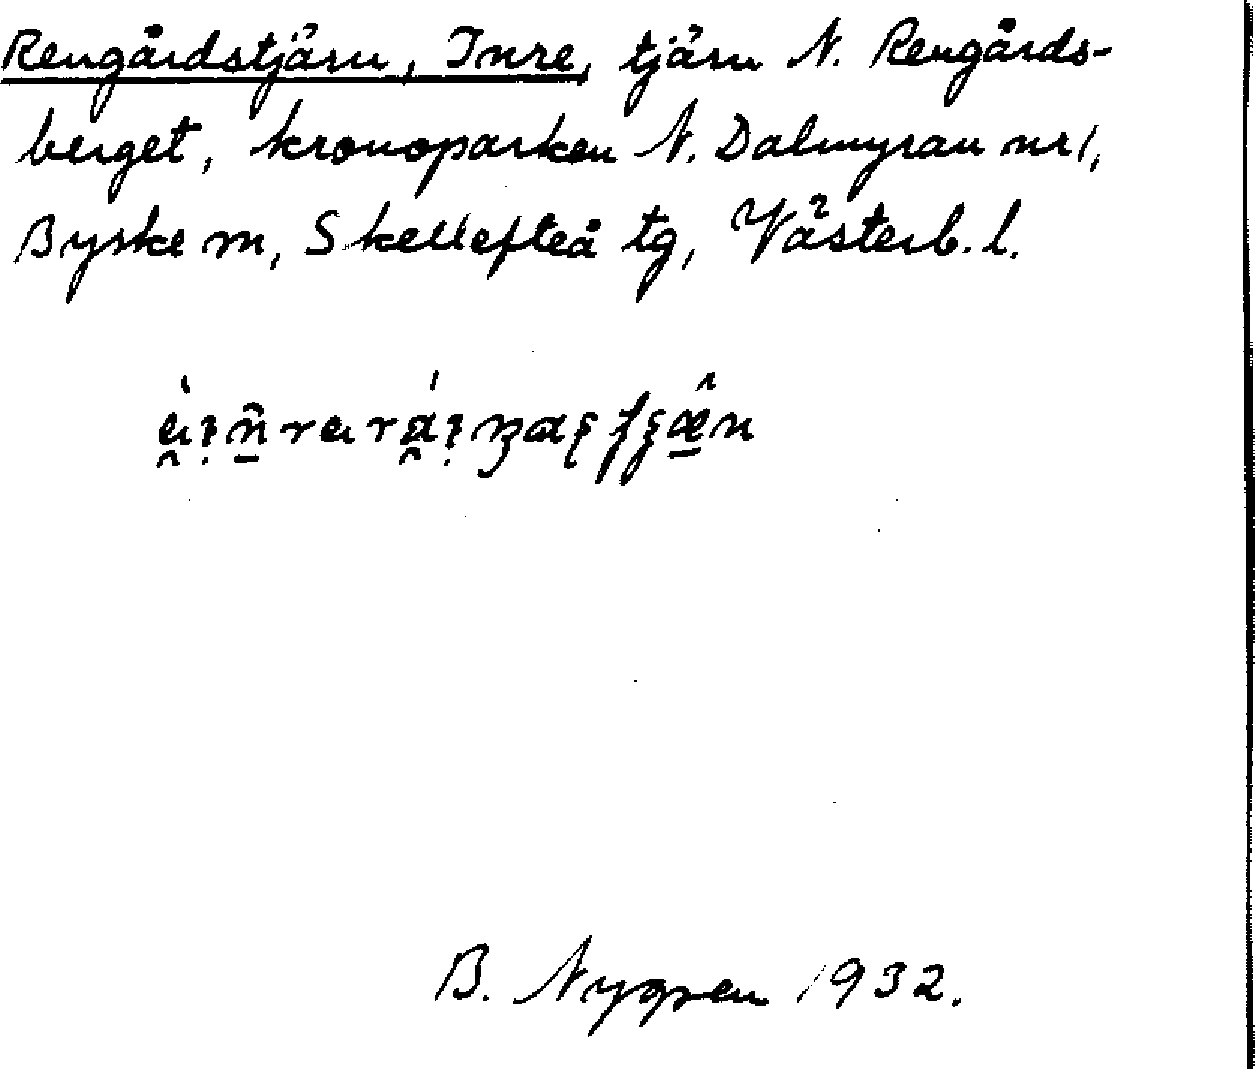 Rengårdstjärn, Inre, tjärn N. Rengårds-
berget, kronoparken N. Dalmyran nr 1,
Byske sn, Skellefteå tg, Västerb. l.
B. Nygren 1932.